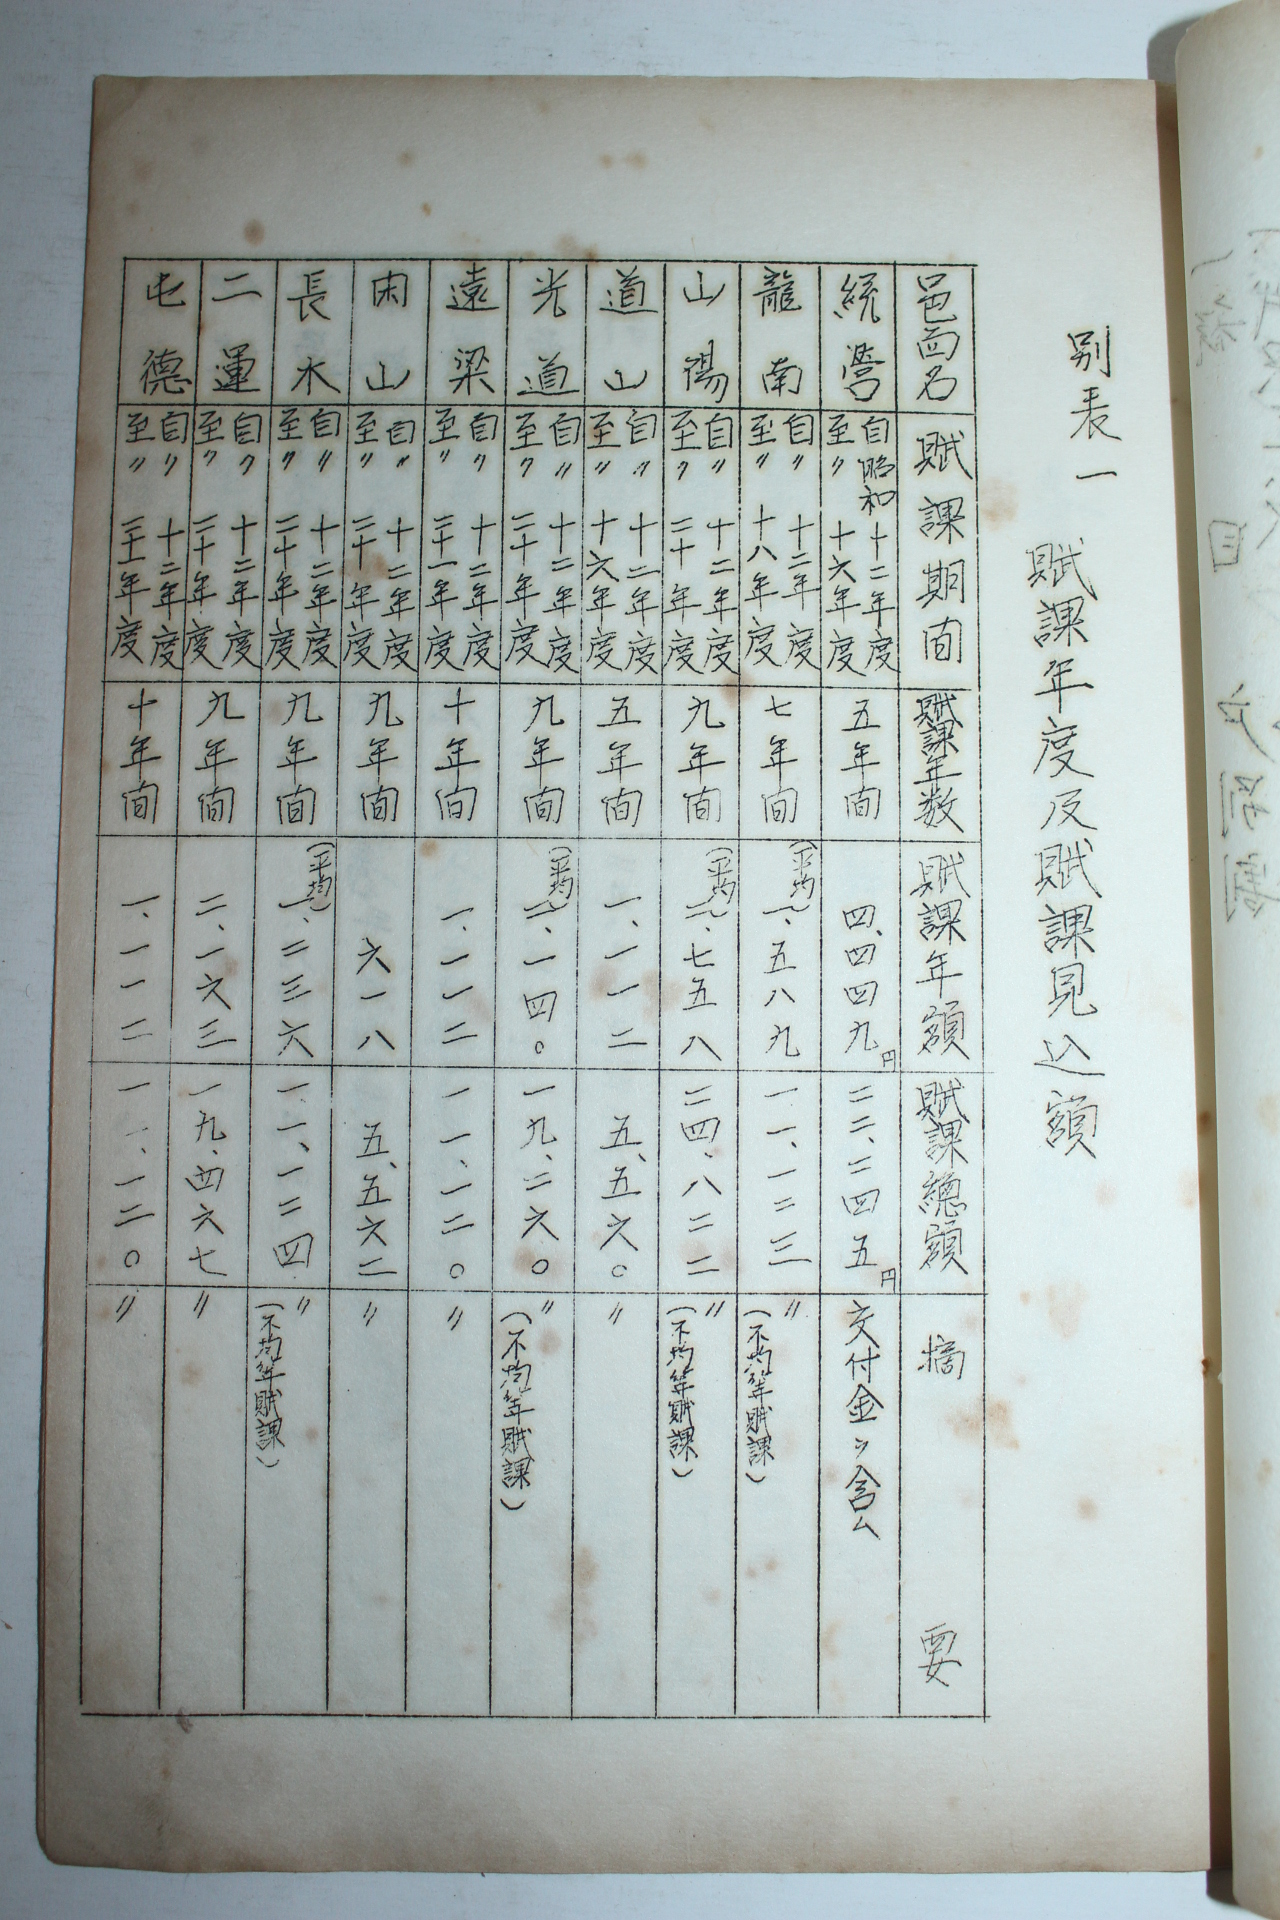 別表一　賦課年度及賦課見込額
邑面名　賦課期間　賦課年数　賦課年額　賦課總額　摘要
統營　自昭和十二年度　至〃十六年度　五年間　四、四四九円　二二、二四五円　交付金ヲ含ム
龍南　自〃十二年度　至〃十八年度　七年間　(平均)一、五八九　一一、一二三　〃(不均等賦課)
山陽　自〃十二年度　至〃二十年度　九年間　(平均)二、七五八　二四、八二二　〃(不均等賦課)
道山　自〃十二年度　至〃十六年度　五年間　一、一一二　五、五六〇　〃
光道　自〃十二年度　至〃二十年度　九年間　(平均)二、一四〇　一九、二六〇　〃(不均等賦課)
遠梁　自〃十二年度　至〃二十一年度　十年間　一、一一二　一一、一二〇　〃
閑山　自〃十二年度　至〃二十年度　九年間　六一八　五、五六二　〃
長木　自〃十二年度　至〃二十年度　九年間　(平均)一、二三六　一一、一二四　〃(不均等賦課)
二運　自〃十二年度　至〃二十年度　九年間　二、一六三　一九、四六七　〃
屯德　自〃十二年度　至〃二十一年度　十年間　一、一一二　一一、一二〇　〃